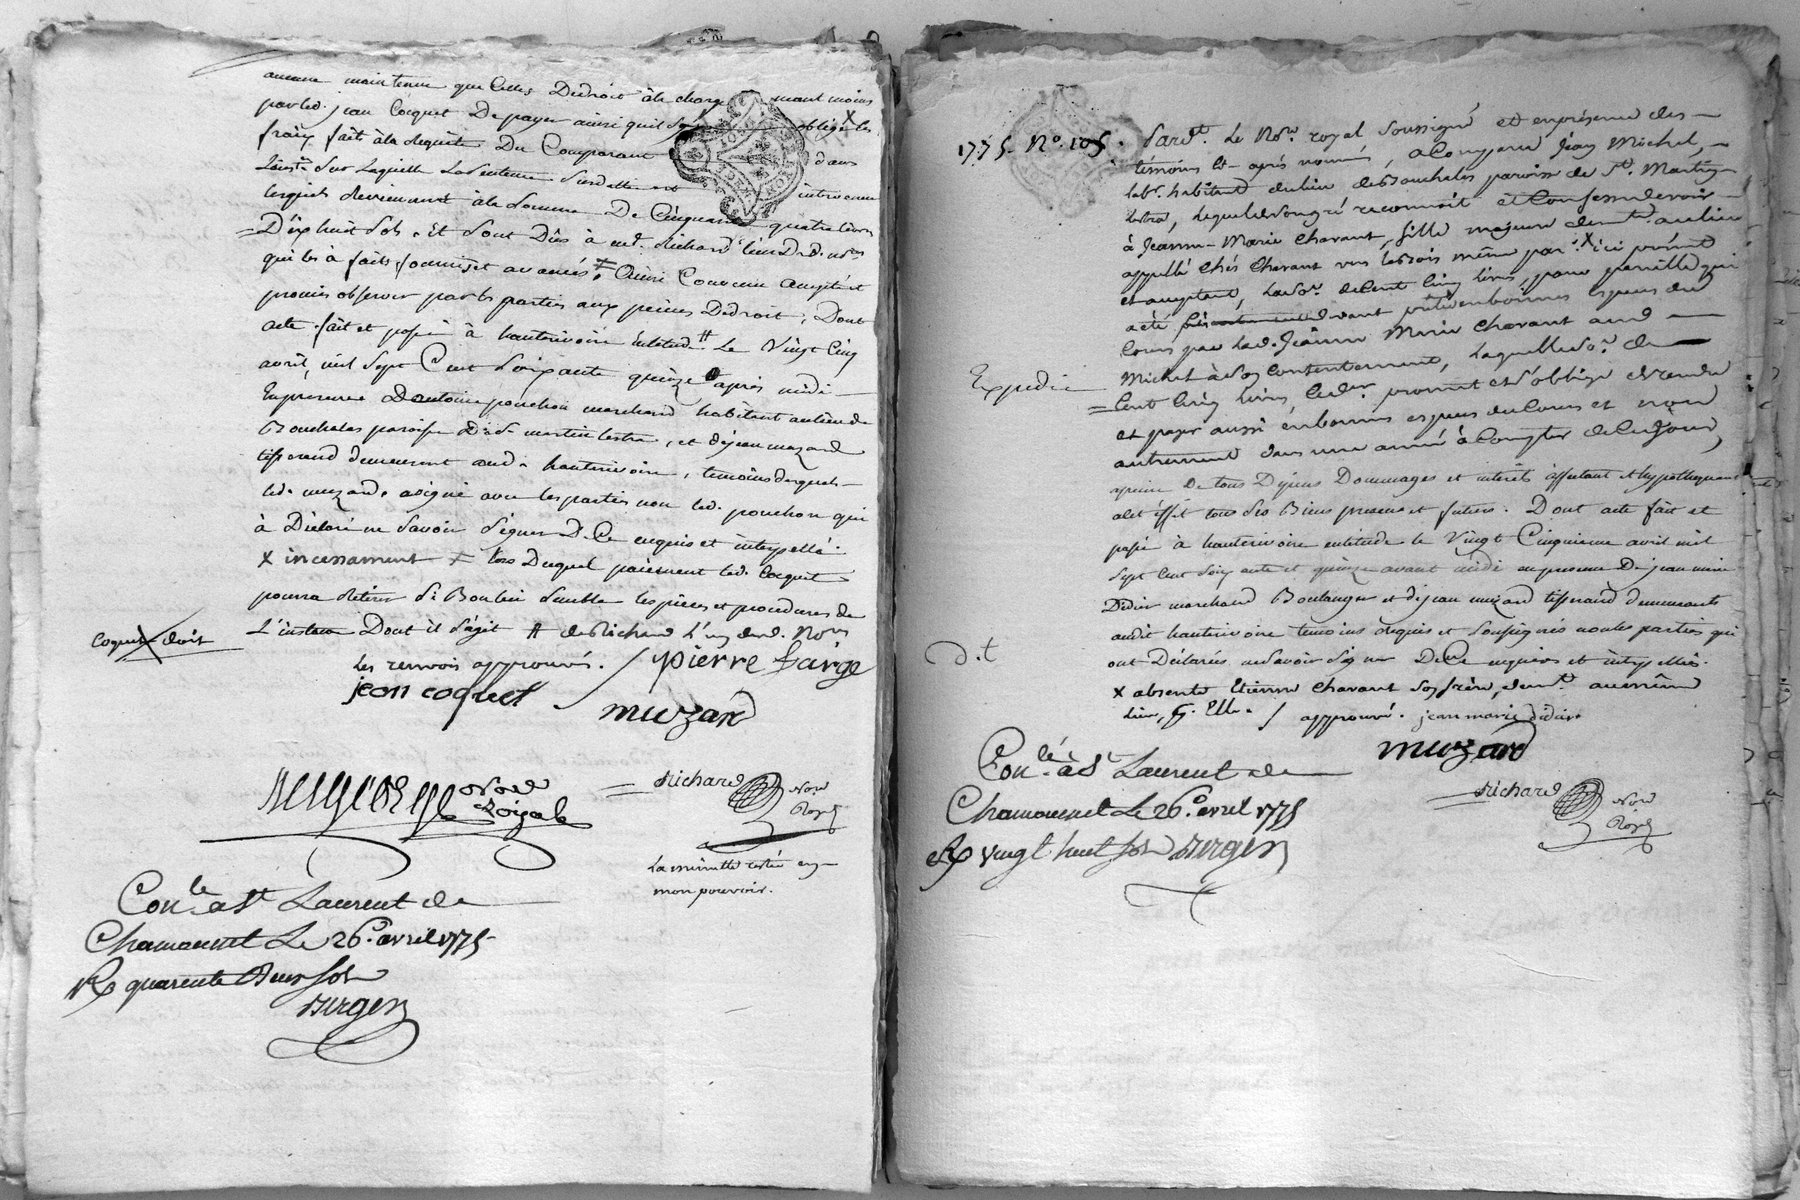 aucune main tenue que celles De droit à la charge néant moins
par led. jean Coquet De payer ainsi qu'il s'y oblige X les
fraix faits à la requête Du Comparant dans
L'inst.ce sur laquelle la Sentence susdatée est intervenue
lesquels reviennent à la somme De Cinquante quatre livres
= Dix huit sols. Et sont Dûs à me. Richard l'un D. d. no.res
qui les à faits, fournis et avancés. Ainsi Convenu accepté et
promis observer par les parties aux peines De droit, Dont
acte. fait et passé à hauterivoire Le Vingt Cinq
avril, mil sept Cent soixante quinze après midi
En presence D'antoine ponchon marchand habitant au lieu de
Bouchalas paroisse De St. martin lestra, et de jean muzard
tisserand demeurant aud. hauterivoire, temoins desquels
led. muzard a signé avec les parties non led. ponchon qui
à Déclaré ne savoir signer De Ce enquis et interpellé.
X incessament lors Duquel paiement led. Coquet
pourra retirer les pieces et procedures de
L'instance Dont il s'agit de Richard L'un des d. No.res
Coquet doit
Les renvois approuvés. pierre farge
jean coquet
muzard
Nore.
Royal
Richard
Nore
Royal
La minutte restée en
mon pouvoir.
Con.lé a St Laurent de
Chamousset Le 26e. avril 1775
R quarente deux sols
Berger
1775. No. 105. Pardt. Le No.re royal soussigné et en presence des
témoins ci-après nommés, a Comparu Jean Michel,
lab.r habitant du lieu des Bouchalas paroisse de St. Martin
lestra, lequel de son gré reconnoit et Confesse devoir
à Jeanne-Marie Chavant, fille majeure demt. au lieu
appellé Chés Chavant par X ici présent
et acceptant, la so.e de Cent Cinq livres, pour pareille qui
a été en bonnes espèces du
Cours par lad. Jeanne Marie Chavant aud.
Michel à son Contentement, laquelle so.e de
Expediée
= Cent Cinq livres, led. promet et s'oblige de rendre
et payer aussi en bonnes espèces du Cours et non
autrement dans une année à Compter de Ce Jour,
apeine De tous Dépens Dommages et interêts affectant et hypothequant
a cet effet tous ses Biens presens et futurs. Dont acte fait et
passé à hauterivoire le Vingt Cinquieme avril mil
sept Cent soix ante et quinze avant midi en presence De jean marie
Didier marchand Boulanger et de jean muzard tisserand demeurants
audit hauterivoire temoins requis et soussignés non les parties qui
ont Déclarés ne savoir signer De Ce enquises et interpellées.
D.t
X absente Etienne Chavant son frère, demt. au même
lieu, p. Elle. / approuvé. jean marie didier
muzard
Richard
Nore
Royal
Con.lé à St Laurent de
Chamousset Le 26e. avril 1775
R vingt huit sols Berger